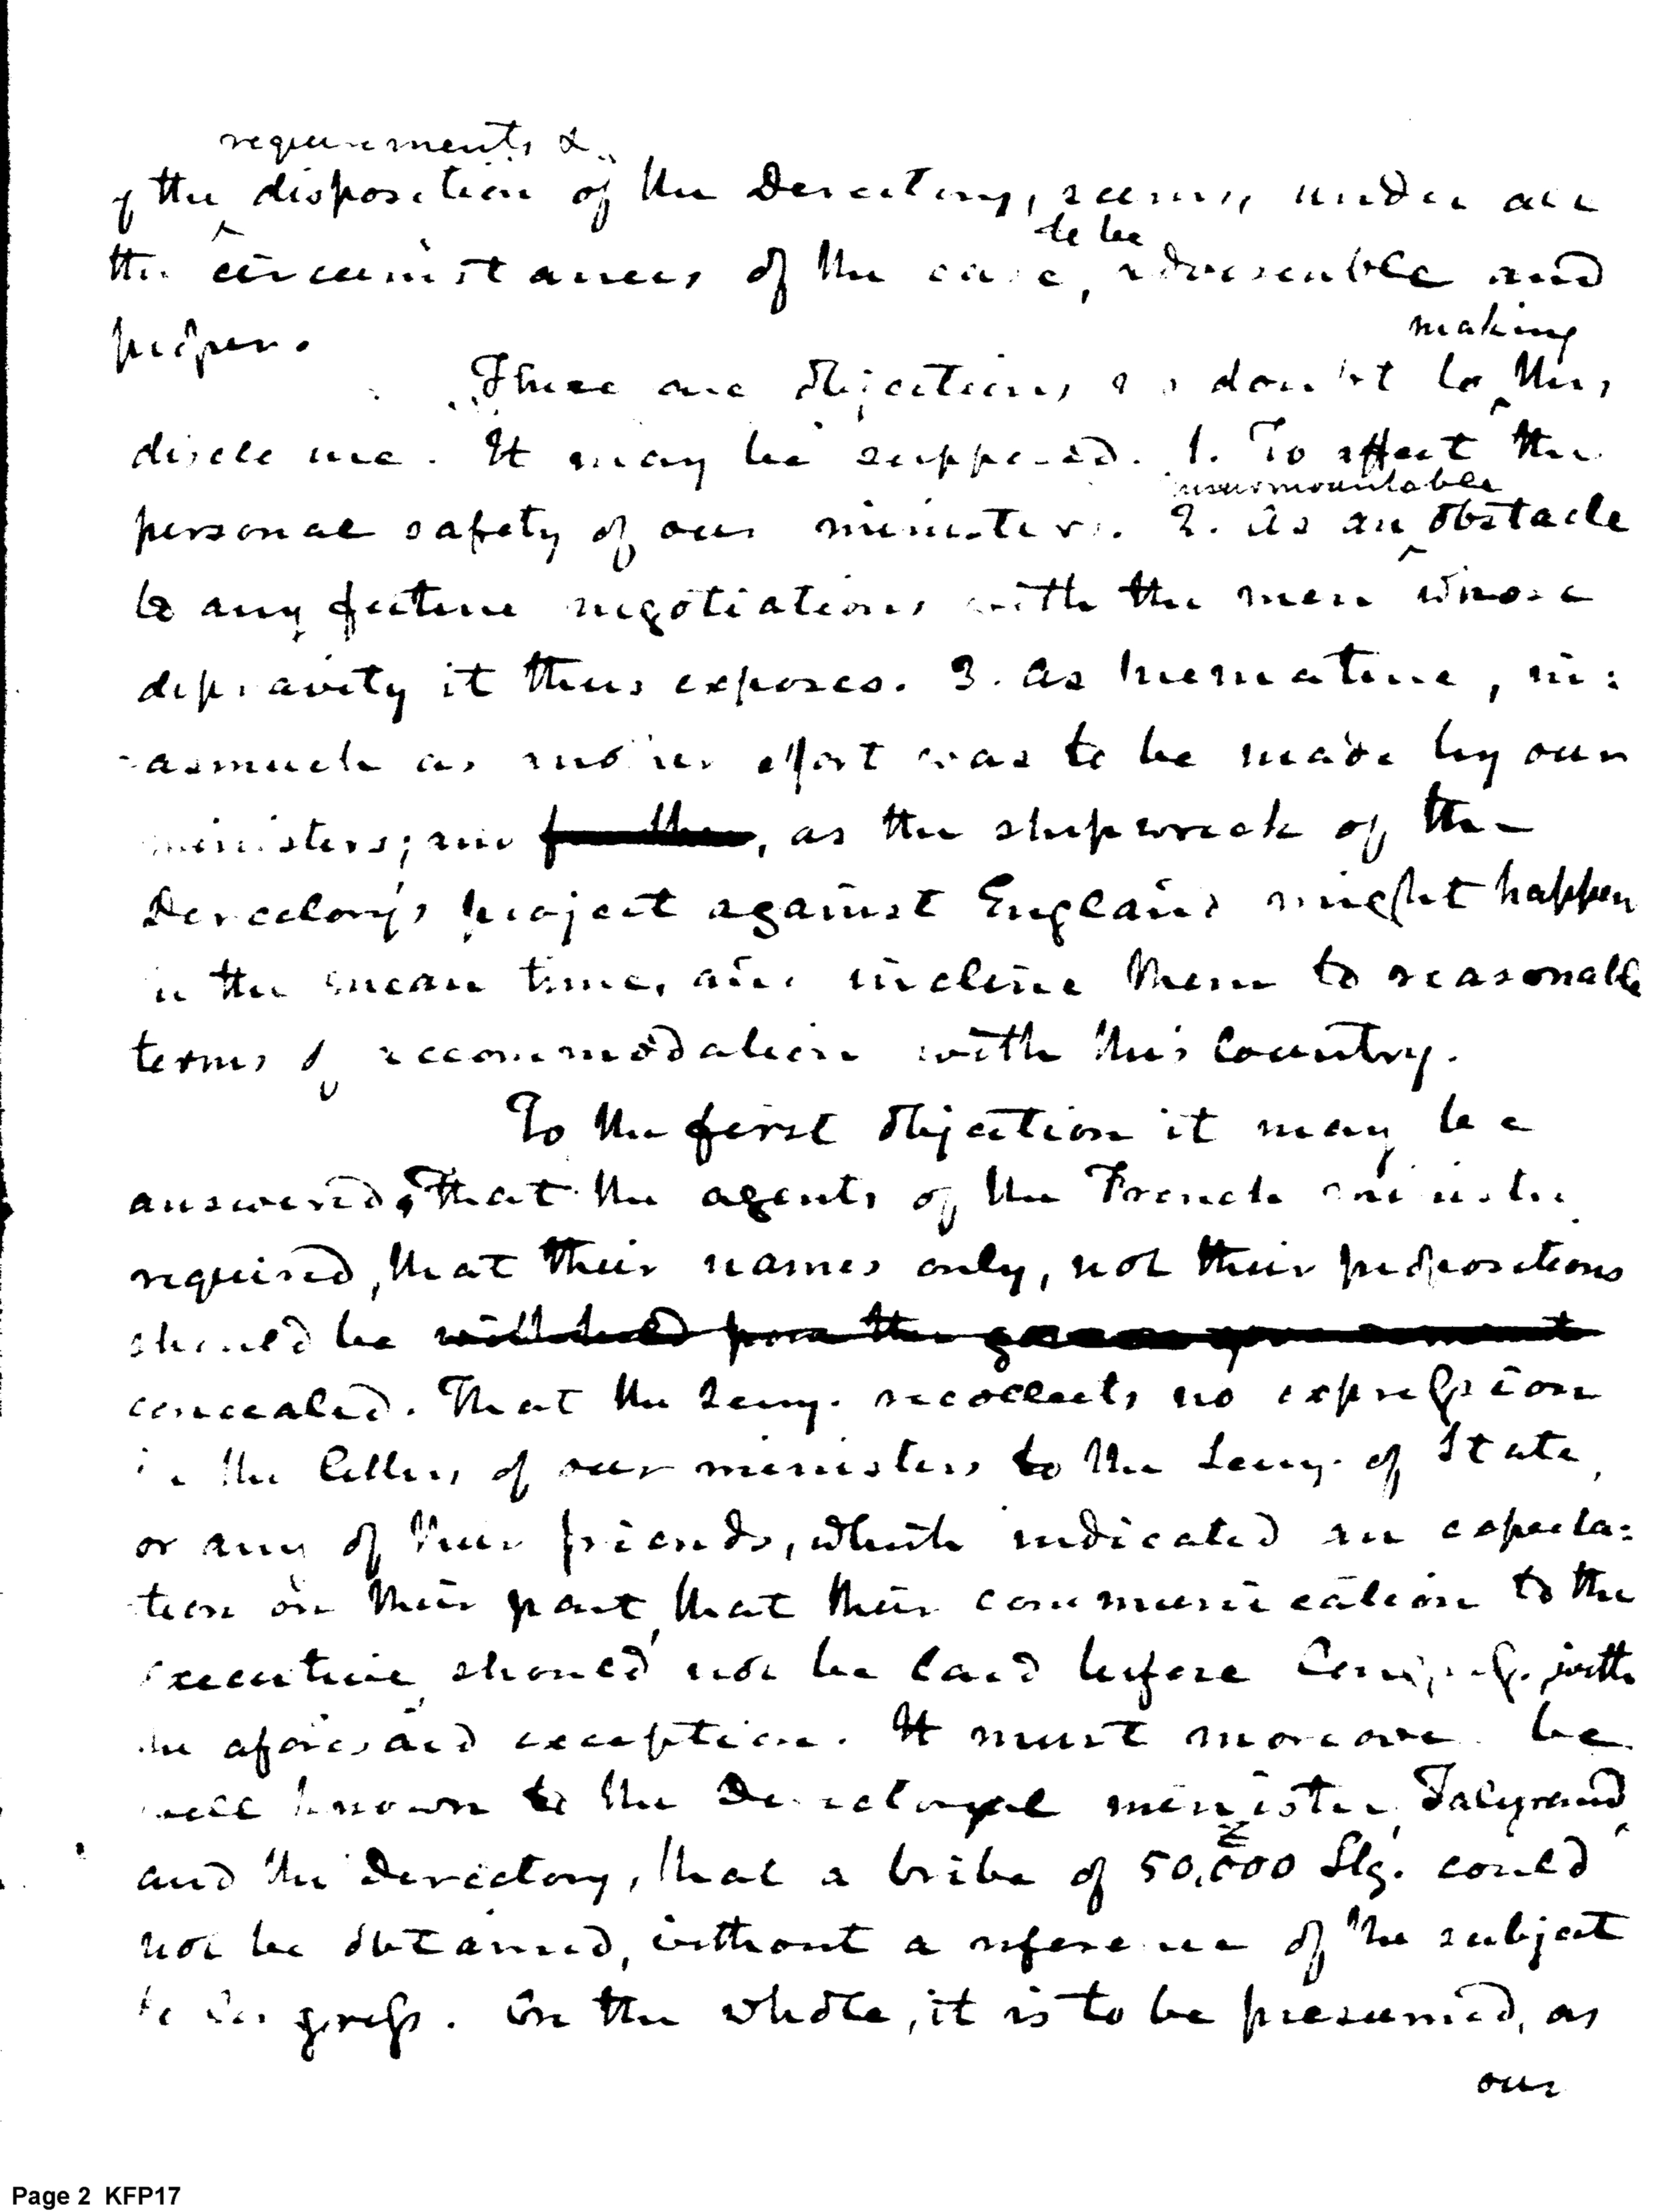 requirements &
of the disposition of the Directory, seems, under all
to be
the circumstances of the case, adviseable and
proper.
making
There are objections no doubt to this
disclosure. It may be supposed. 1. To affect the
insurmountable
personal safety of our ministers. 2. As an obstacle
to any future negotiations with the men whose
depravity it thus exposes. 3. as premature, in:
-asmuch as another effort was to be made by our
ministers; and further, as the shipwreck of the
Directory's project against England might happen
in the mean time, and incline them to reasonable
terms of accommodation with this Country.
To the first objection it may be
answered, That the agents of the French minister
required, that their names only, not their propositions
should be withheld from the government
concealed. That the Secy. recollects no expression
in the letters of our ministers to the Secy. of State,
or any of their friends, which indicated an expecta:
tion on their part, that their communication to the
executive, should not be laid before Congress. with
the aforesaid exception. It must moreover be
well known to the Directoryal minister, Talyrand,
and the Directory, that a bribe of 50,000 Stg. could
not be obtained, without a reference of the subject
to Congress. On the whole, it is to be presumed, as
our
Page 2 KFP17